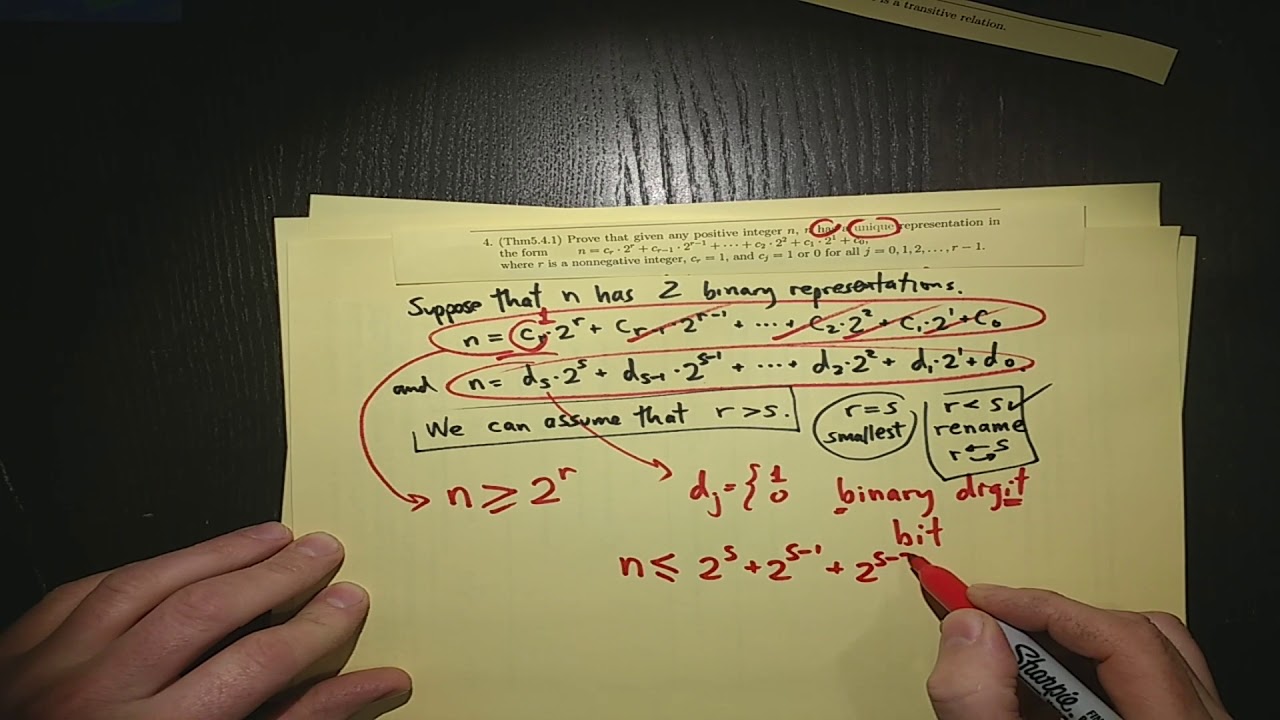 is a transitive relation.
4. (Thm5.4.1) Prove that given any positive integer n, n has unique representation in
the form n = cᵣ · 2ʳ + cᵣ₋₁ · 2ʳ⁻¹ + ··· + c₂ · 2² + c₁ · 2¹ + c₀,
where r is a nonnegative integer, cᵣ = 1, and cⱼ = 1 or 0 for all j = 0, 1, 2, ..., r − 1.
Suppose that n has 2 binary representations.
1
n = cᵣ · 2ʳ + cᵣ₋₁ · 2ʳ⁻¹ + ··· + c₂ · 2² + c₁ · 2¹ + c₀
and n = dₛ · 2ˢ + dₛ₋₁ · 2ˢ⁻¹ + ··· + d₂ · 2² + d₁ · 2¹ + d₀.
We can assume that r > s.
r = s
smallest
r < s ✓
rename
r ↔ s
n ≥ 2ʳ
dⱼ = { 1
0
binary drgit
bit
n ≤ 2ˢ + 2ˢ⁻¹ + 2ˢ⁻
Sharpie